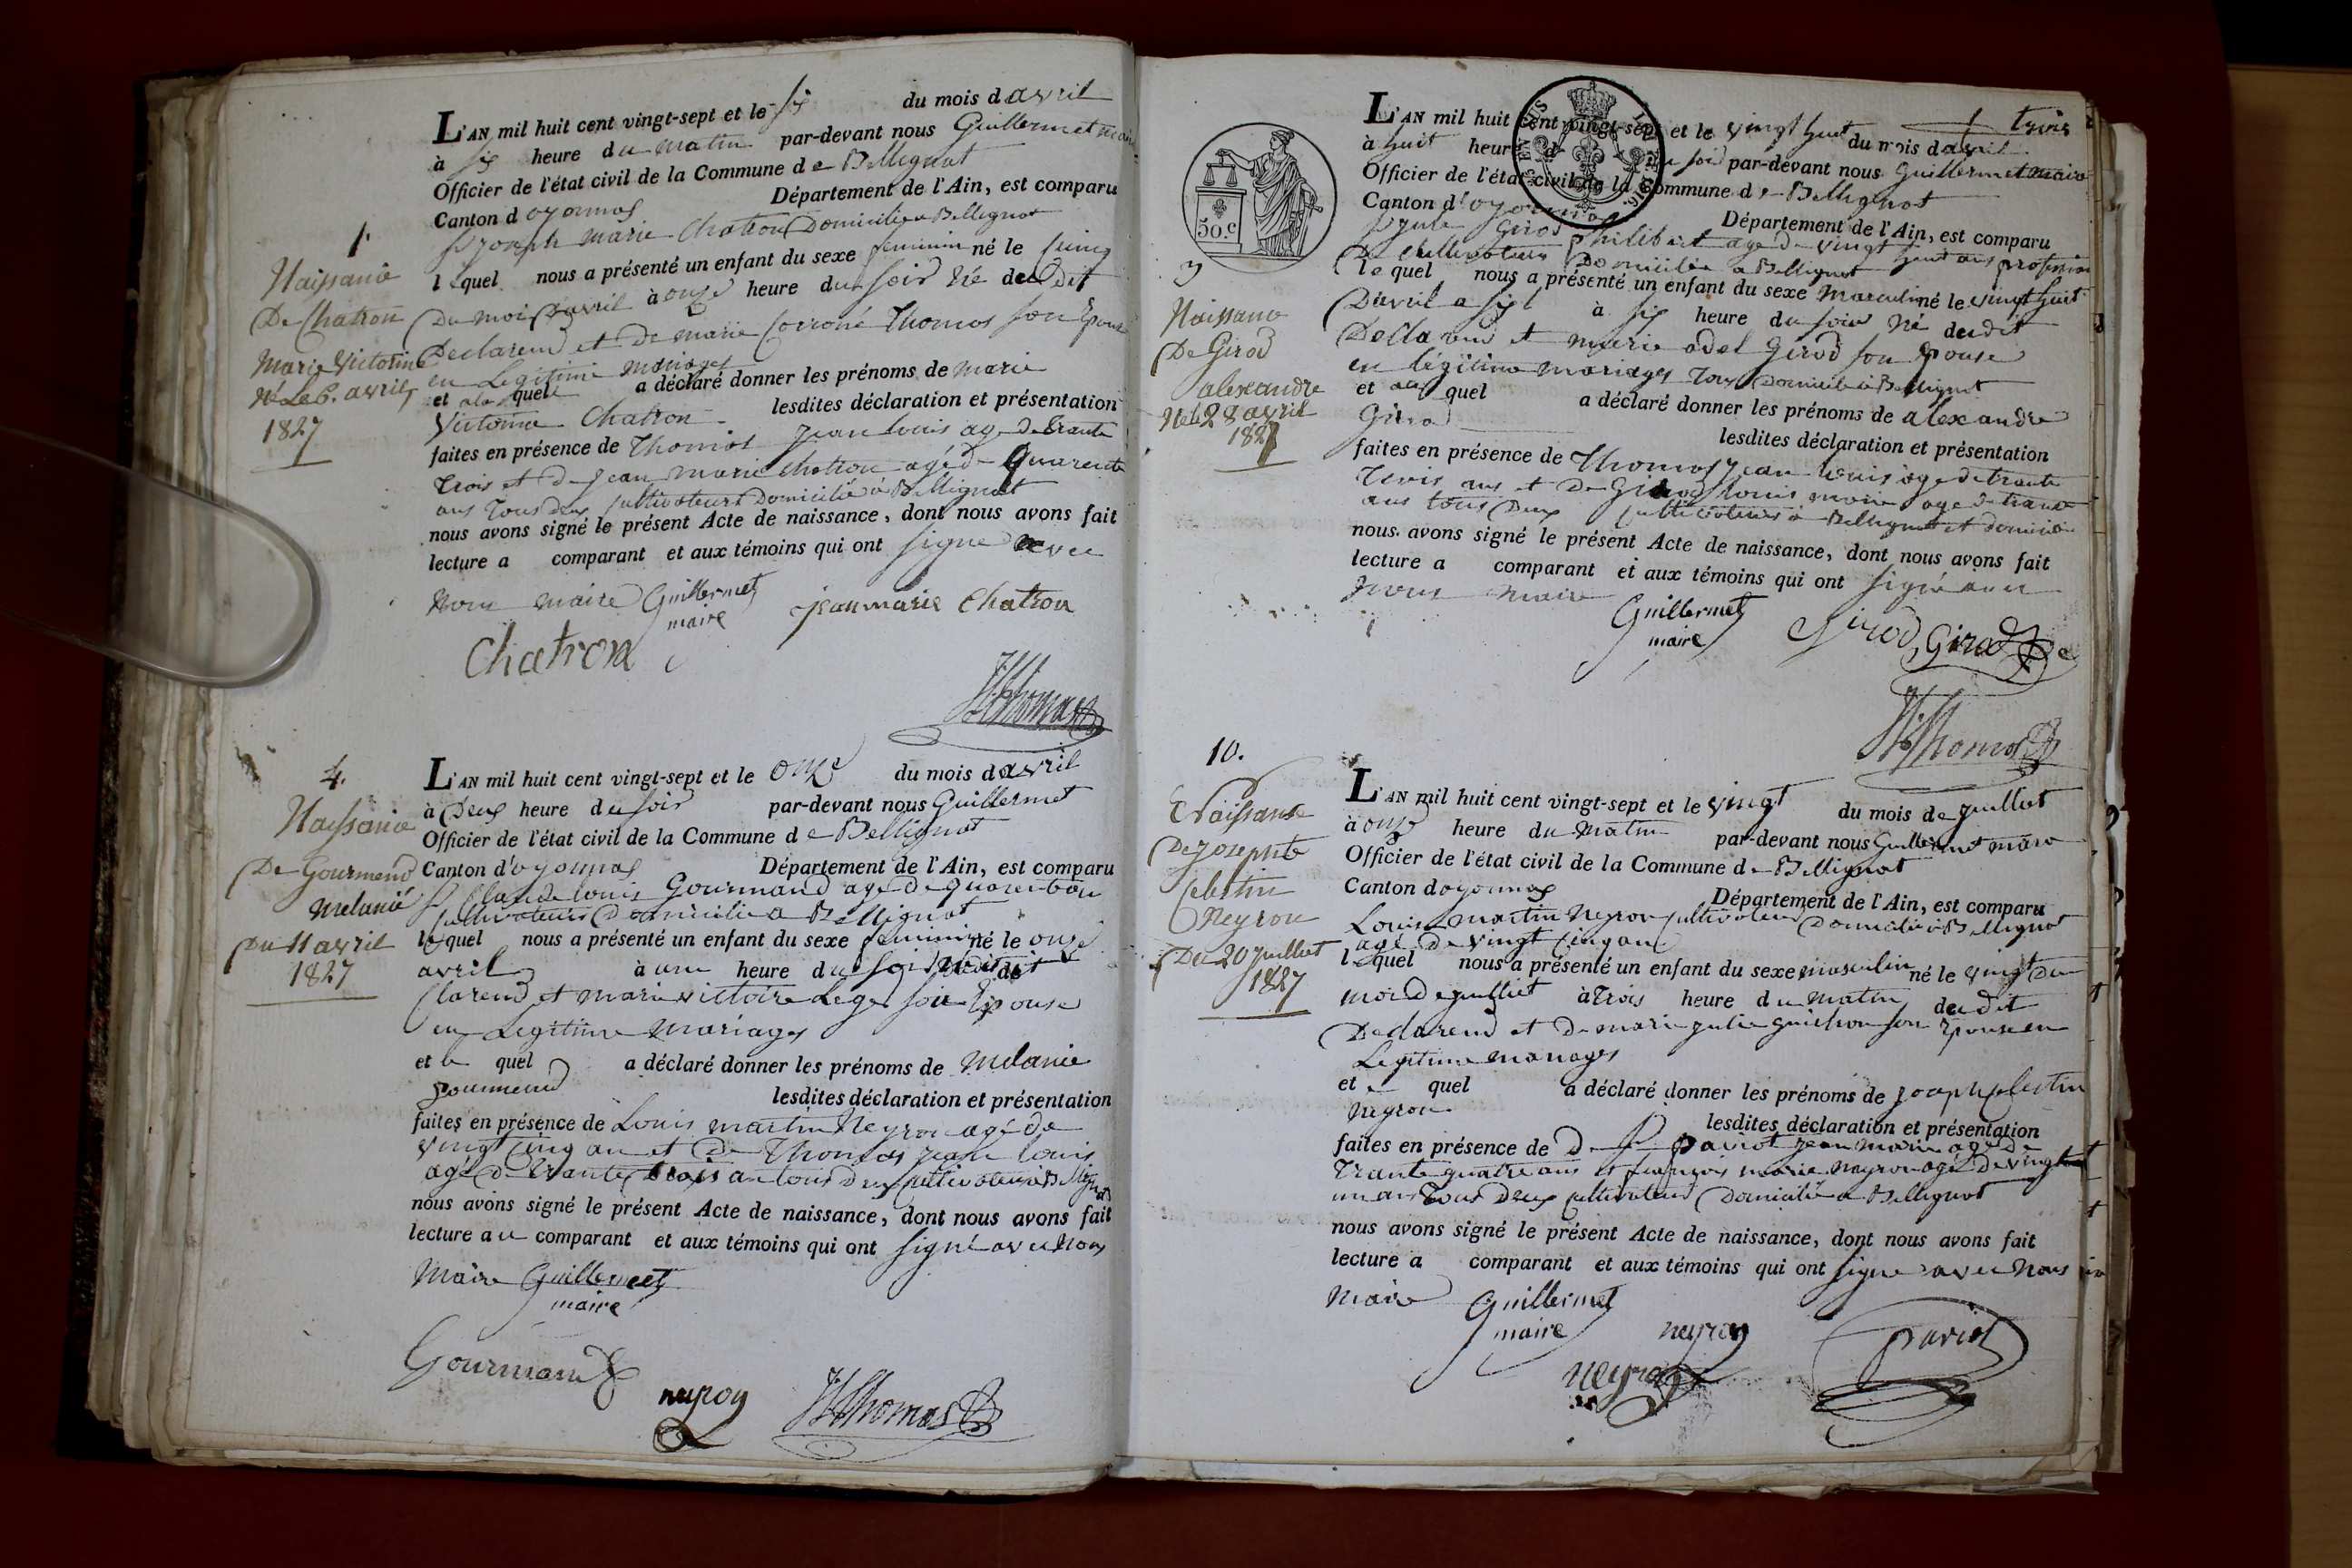 1.
Naissance
De Chatron
Marie Victorine
Né Le 6. avril
1827
L'AN mil huit cent vingt-sept et le six du mois d avril
à six heure du matin par-devant nous Guillermet maire
Officier de l'état civil de la Commune de Bellignat
Canton d oyonnas Département de l'Ain, est comparu
Joseph Marie Chatron Domicilié a Bellignat
lequel nous a présenté un enfant du sexe feminin né le cinq
Du moi d'avril à onze heure du soir Né dudit
Declarend et de marie Thomas son Epouse
en Legitime mariages
et quel a déclaré donner les prénoms de marie
Victorine Chatron lesdites déclaration et présentation
faites en présence de Thomas Jean louis age de trante
trois et de Jean marie chatron agé de quarente
ans tous deux cultivateurs Domicilié à Bellignat
nous avons signé le présent Acte de naissance, dont nous avons fait
lecture a comparant et aux témoins qui ont signe avec
nous maire Guillermet
maire
jean marie Chatron
Chatron
JLThomas
4.
Naissance
De Gourmend
melanie
Du 11 avril
1827
L'AN mil huit cent vingt-sept et le onze du mois d avril
à Deux heure du soir par-devant nous Guillermet
Officier de l'état civil de la Commune de Bellignat
Canton d'oyonnas Département de l'Ain, est comparu
Claude louis Gourmand age de quarente
cultivateur Domicilié a Bellignat
lequel nous a présenté un enfant du sexe feminin né le onze
avril à une heure du soir
Clarend et marie victoire Leger son Epouse
en Legitime Mariages
et le quel a déclaré donner les prénoms de Melanie
gourmend lesdites déclaration et présentation
faites en présence de Louis martin Neyron agé de
vingt cinq an et De Thomas jean louis
agé de trante trois an tous deux cultivateur à Bellignat
nous avons signé le présent Acte de naissance, dont nous avons fait
lecture au comparant et aux témoins qui ont signé avec nous
Maire Guillermet
maire
Gourmand
neyron
JLThomas
50.c
Naissance
De Girod
alexandre
Né le 28 avril
1827
L'AN mil huit cent vingt-sept et le vingt huit du mois d avril
à huit heure du soir par-devant nous Guillermet maire
Officier de l'état civil de la Commune de Bellignat
Canton d'oyonnas Département de l'Ain, est comparu
Girod philibert age de vingt huit ans profession
De cultivateur Domicilié a Bellignat
lequel nous a présenté un enfant du sexe Masculin né le vingt huit
D'avril à six heure du soir Né dudit
Declarend et marie adel Girod son Epouse
en légitime mariages tous Domicilié à Bellignat
et quel a déclaré donner les prénoms de alexandre
Girod lesdites déclaration et présentation
faites en présence de Thomas jean louis age de trante
trois ans et De Girod louis marie age de trante
ans tous Deux cultivateurs à Bellignat et domicilié
nous avons signé le présent Acte de naissance, dont nous avons fait
lecture a comparant et aux témoins qui ont signé avec
nous maire
Guillermet
maire
Girod Girod
JLThomas
10.
Naissance
De joseph
Celestin
Neyron
Du 20 juilliet
1827
L'AN mil huit cent vingt-sept et le vingt du mois de juilliet
à onze heure du Matin par-devant nous Guillermet maire
Officier de l'état civil de la Commune de Bellignat
Canton d oyonnas Département de l'Ain, est comparu
Louis martin Neyron cultivateur Domicilié à Bellignat
age de vingt cinq ans
lequel nous a présenté un enfant du sexe masculin né le vingt du
mois de juilliet à trois heure du matin dudit
Declarend et De marie julie guichon son Epouse en
Legitime mariages
et quel a déclaré donner les prénoms de joseph Celestin
Neyron lesdites déclaration et présentation
faites en présence de paviot jean marie age de
trante quatre ans et françois marie neyron age de vingt
un an tous Deux cultivateurs Domicilié a Bellignat
nous avons signé le présent Acte de naissance, dont nous avons fait
lecture a comparant et aux témoins qui ont signe avec nous
maire Guillermet
maire
neyron
neyron
paviot